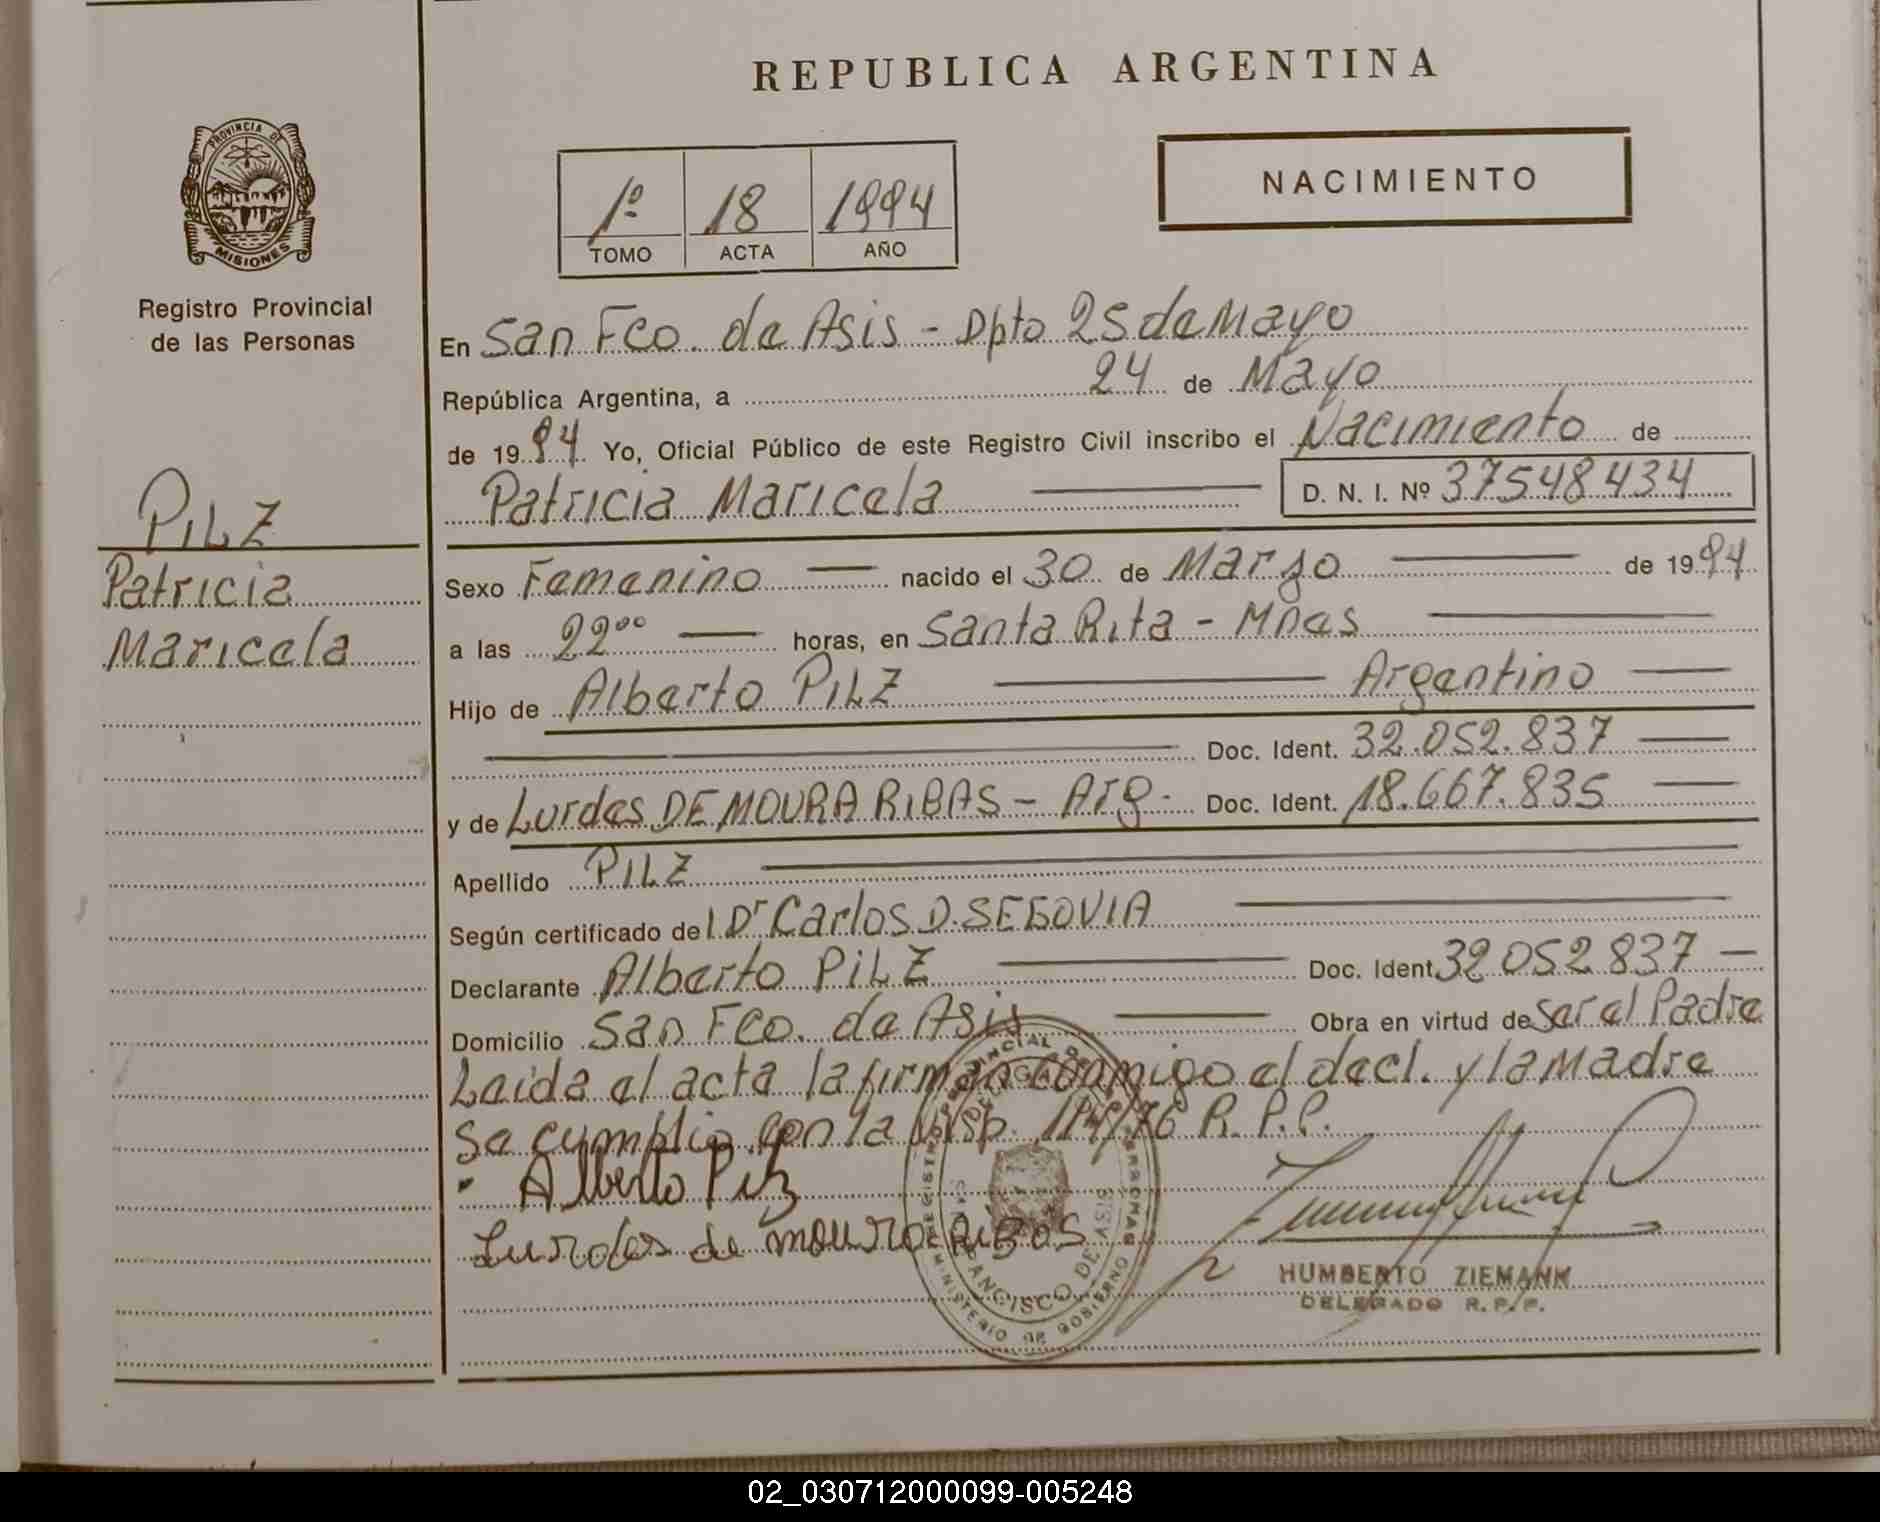 REPUBLICA ARGENTINA
PROVINCIA DE
MISIONES
Registro Provincial
de las Personas
PILZ
Patricia
Maricela
1º 18 1994
TOMO ACTA AÑO
NACIMIENTO
En San Fco. de Asis - Dpto 25 de Mayo
República Argentina, a 24 de Mayo
de 1994 Yo, Oficial Público de este Registro Civil inscribo el Nacimiento de
Patricia Maricela D. N. I. Nº 37548434
Sexo Femenino nacido el 30 de Marzo de 1994
a las 22⁰⁰ horas, en Santa Rita - Mnes
Hijo de Alberto PILZ Argentino
Doc. Ident. 32.052.837
y de Lurdes DE MOURA RIBAS - Arg. Doc. Ident. 18.667.835
Apellido PILZ
Según certificado del Dr Carlos D. SEGOVIA
Declarante Alberto PILZ Doc. Ident. 32052837
Domicilio San Fco. de Asis Obra en virtud de ser el Padre
Leida el acta la firman conmigo el decl. y la Madre
Se cumplio con la Disp. /76 R. P. P.
Alberto Pilz
Lurdes de moura Ribas
HUMBERTO ZIEMANN
DELEGADO R. P. P.
MINISTERIO DE GOBIERNO
FRANCISCO DE ASIS
02_030712000099-005248